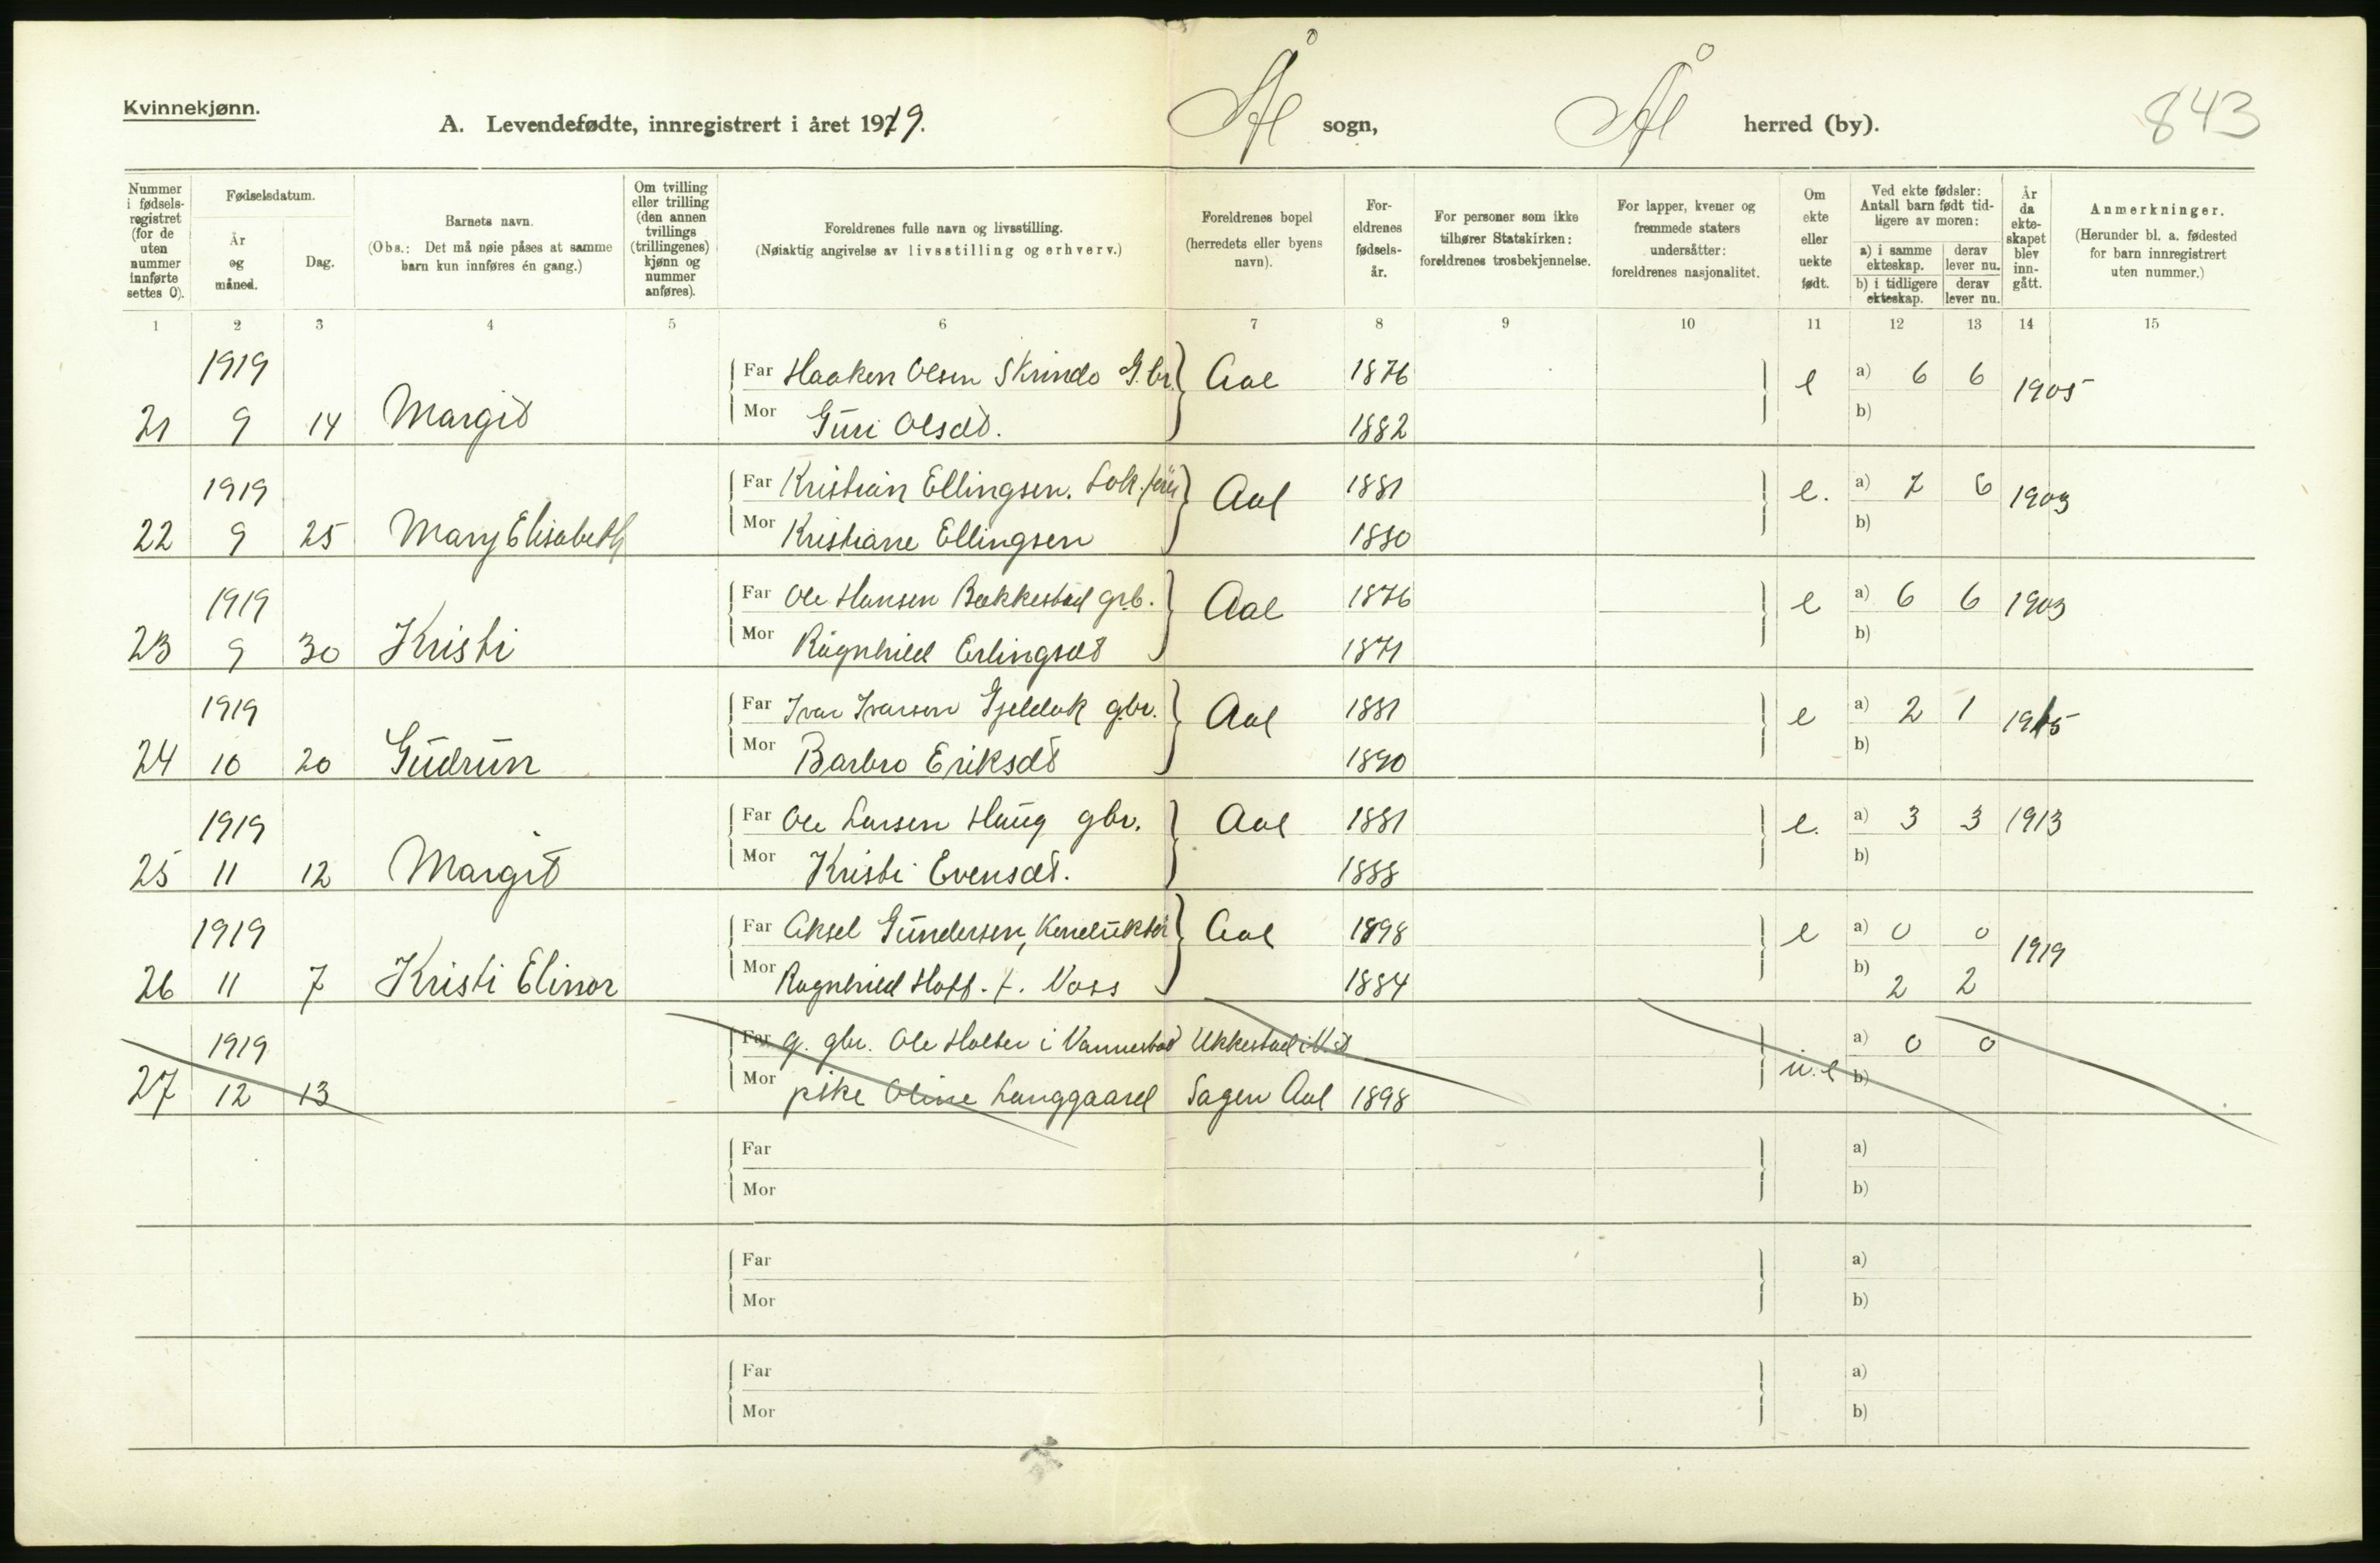 Kvinnekjønn.
A. Levendefødte, innregistrert i året 1919.
Ål sogn, Ål herred (by).
843
Nummer i fødselsregistret (for de uten nummer innførte settes 0).
Fødselsdatum.
År og måned.
Dag.
Barnets navn.
(Obs.: Det må nøie påses at samme barn kun innføres én gang.)
Om tvilling eller trilling (den annen tvillings (trillingenes) kjønn og nummer anføres).
Foreldrenes fulle navn og livsstilling.
(Nøiaktig angivelse av livsstilling og erhverv.)
Foreldrenes bopel (herredets eller byens navn).
Foreldrenes fødselsår.
For personer som ikke tilhører Statskirken: foreldrenes trosbekjennelse.
For lapper, kvener og fremmede staters undersåtter: foreldrenes nasjonalitet.
Om ekte eller uekte født.
Ved ekte fødsler: Antall barn født tidligere av moren:
a) i samme ekteskap. derav lever nu.
b) i tidligere ekteskap. derav lever nu.
År da ekteskapet blev inngått.
Anmerkninger.
(Herunder bl. a. fødested for barn innregistrert uten nummer.)
1 2 3 4 5 6 7 8 9 10 11 12 13 14 15
1919 Far Haaken Olsen Skrindo G.br. Aal 1876 e a) 6 6 1905
21 9 14 Margit Mor Guri Olsdt. 1882 b)
1919 Far Kristian Ellingsen. Lok.fører Aal 1881 e. a) 7 6 1903
22 9 25 Mary Elisabeth Mor Kristiane Ellingsen 1880 b)
1919 Far Ole Hansen Bakkestad grb. Aal 1876 e a) 6 6 1903
23 9 30 Kristi Mor Ragnhild Erlingsdt 1871 b)
1919 Far Ivar Ivarsen Gjeldok gbr. Aal 1881 e a) 2 1 1915
24 10 20 Gudrun Mor Barbro Eriksdt 1890 b)
1919 Far Ole Larsen Haug gbr. Aal 1881 e. a) 3 3 1913
25 11 12 Margit Mor Kristi Evensdt. 1888 b)
1919 Far Aksel Gundersen, Konduktør Aal 1898 e a) 0 0 1919
26 11 7 Kristi Elinor Mor Ragnhild Hoff. f. Voss 1884 b) 2 2
1919 Far g. gbr. Ole Holter i Ukkestad i a) 0 0
27 12 13 Mor pike Oline Langgaard Sagen Aal 1898 u.e b)
Far a)
Mor b)
Far a)
Mor b)
Far a)
Mor b)